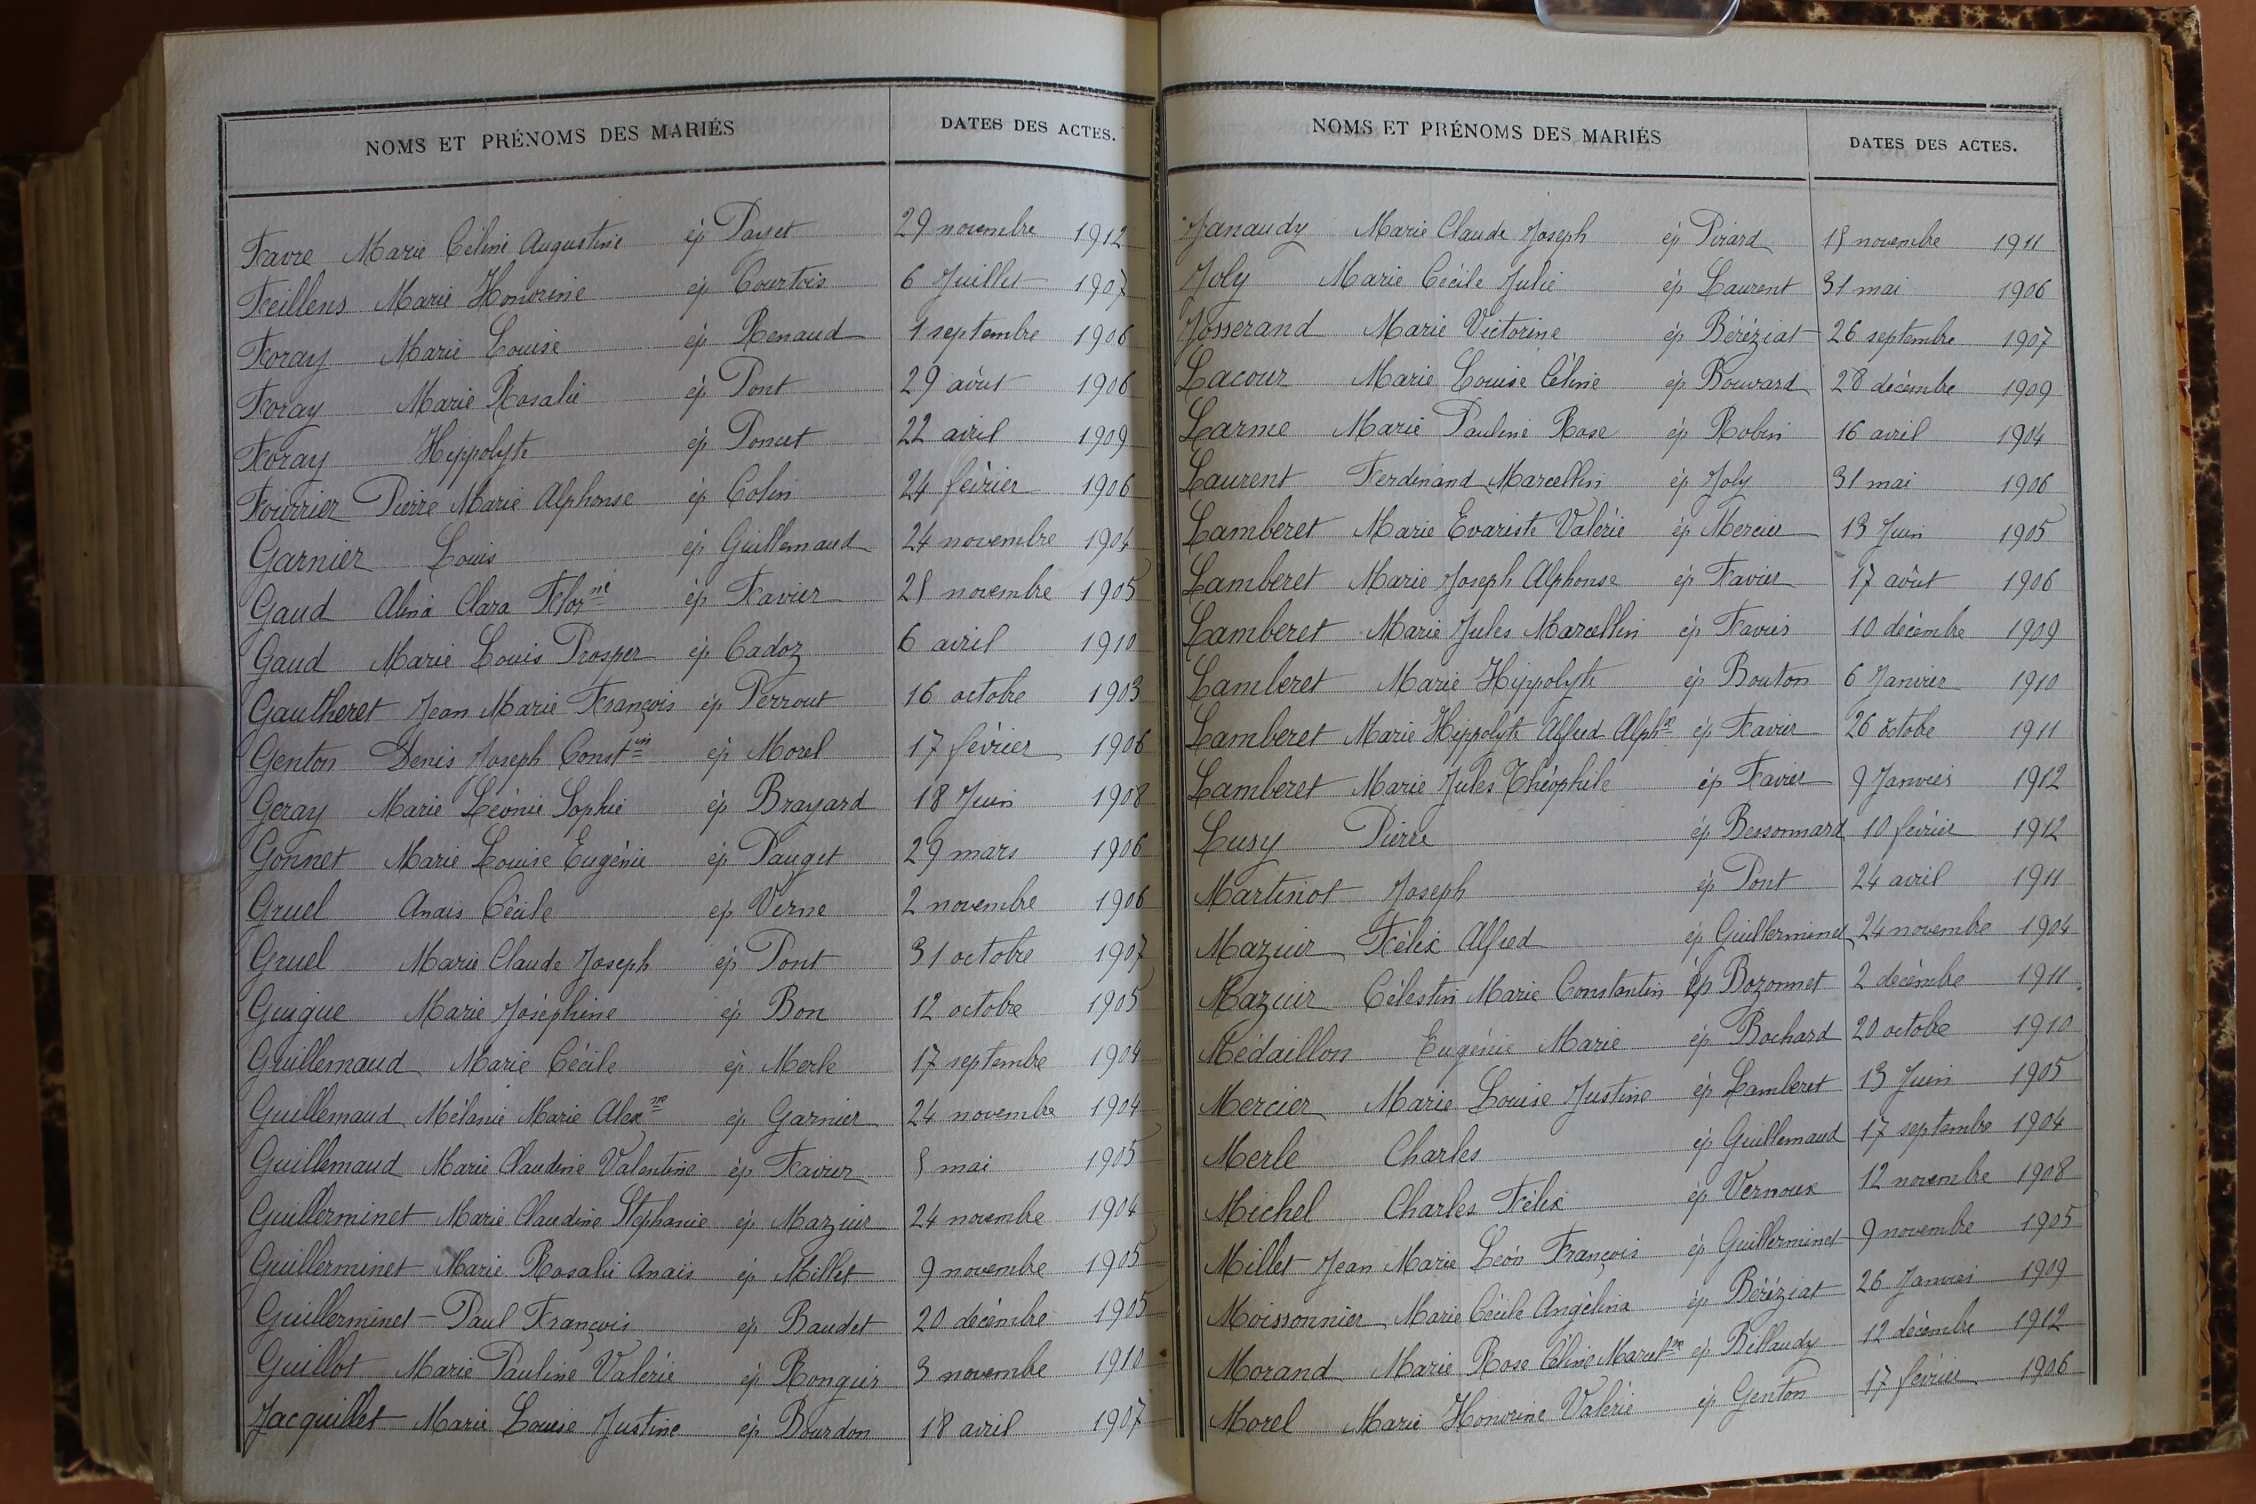 NOMS ET PRÉNOMS DES MARIÉS DATES DES ACTES.
Favre Marie Céline Augustine ép Passet 29 novembre 1912
Feillens Marie Honorine ép Courtois 6 Juillet 1907
Foray Marie Louise ép Renaud 1 septembre 1906
Foray Marie Rosalie ép Pont 29 août 1906
Foray Hippolyte ép Poncet 22 avril 1909
Fourrier Pierre Marie Alphonse ép Colin 24 février 1906
Garnier Louis ép Guillemaud 24 novembre 1904
Gaud Alina Clara Flor.ne ép Favier 25 novembre 1905
Gaud Marie Louis Prosper ép Cadoz 6 avril 1910
Gautheret Jean Marie François ép Perrout 16 octobre 1903
Genton Denis Joseph Const.in ép Morel 17 février 1906
Geray Marie Léonie Sophie ép Brayard 18 Juin 1908
Gonnet Marie Louise Eugénie ép Pauget 29 mars 1906
Gruel Anais Cécile ép Verne 2 novembre 1906
Gruel Marie Claude Joseph ép Pont 31 octobre 1907
Guigue Marie Joséphine ép Bon 12 octobre 1905
Guillemaud Marie Cécile ép Merle 17 septembre 1904
Guillemaud Mélanie Marie Alex.ne ép Garnier 24 novembre 1904
Guillemaud Marie Claudine Valentine ép Favier 5 mai 1905
Guillerminet Marie Claudine Stéphanie ép Mazuir 24 novembre 1904
Guillerminet Marie Rosalie Anais ép Millet 9 novembre 1905
Guillerminet Paul François ép Baudet 20 décembre 1905
Guillot Marie Pauline Valérie ép Ronguis 3 novembre 1910
Jacquillet Marie Louise Justine ép Bourdon 18 avril 1907
NOMS ET PRÉNOMS DES MARIÉS DATES DES ACTES.
Janaudy Marie Claude Joseph ép Pirard 15 novembre 1911
Joly Marie Cécile Julie ép Laurent 31 mai 1906
Josserand Marie Victorine ép Béréziat 26 septembre 1907
Lacour Marie Louise Céline ép Bouvard 28 décembre 1909
Larme Marie Pauline Rose ép Robin 16 avril 1904
Laurent Ferdinand Marcellin ép Joly 31 mai 1906
Lamberet Marie Evariste Valérie ép Mercier 13 Juin 1905
Lamberet Marie Joseph Alphonse ép Favier 17 août 1906
Lamberet Marie Jules Marcellin ép Favier 10 décembre 1909
Lamberet Marie Hippolyte ép Bouton 6 Janvier 1910
Lamberet Marie Hippolyte Alfred Alph.se ép Favier 26 octobre 1911
Lamberet Marie Jules Théophile ép Favier 9 Janvier 1912
Lusy Pierre ép Bessonnard 10 février 1912
Martinot Joseph ép Pont 24 avril 1911
Mazuir Félix Alfred ép Guillerminet 24 novembre 1904
Mazuir Célestin Marie Constantin ép Bozonnet 2 décembre 1911
Médaillon Eugénie Marie ép Bochard 20 octobre 1910
Mercier Marie Louise Justine ép Lamberet 13 Juin 1905
Merle Charles ép Guillemaud 17 septembre 1904
Michel Charles Félix ép Vernoux 12 novembre 1908
Millet Jean Marie Léon François ép Guillerminet 9 novembre 1905
Moissonnier Marie Cécile Angélina ép Béréziat 26 Janvier 1909
Morand Marie Rose Céline Marcel.ne ép Billaudy 12 décembre 1912
Morel Marie Honorine Valérie ép Genton 17 février 1906